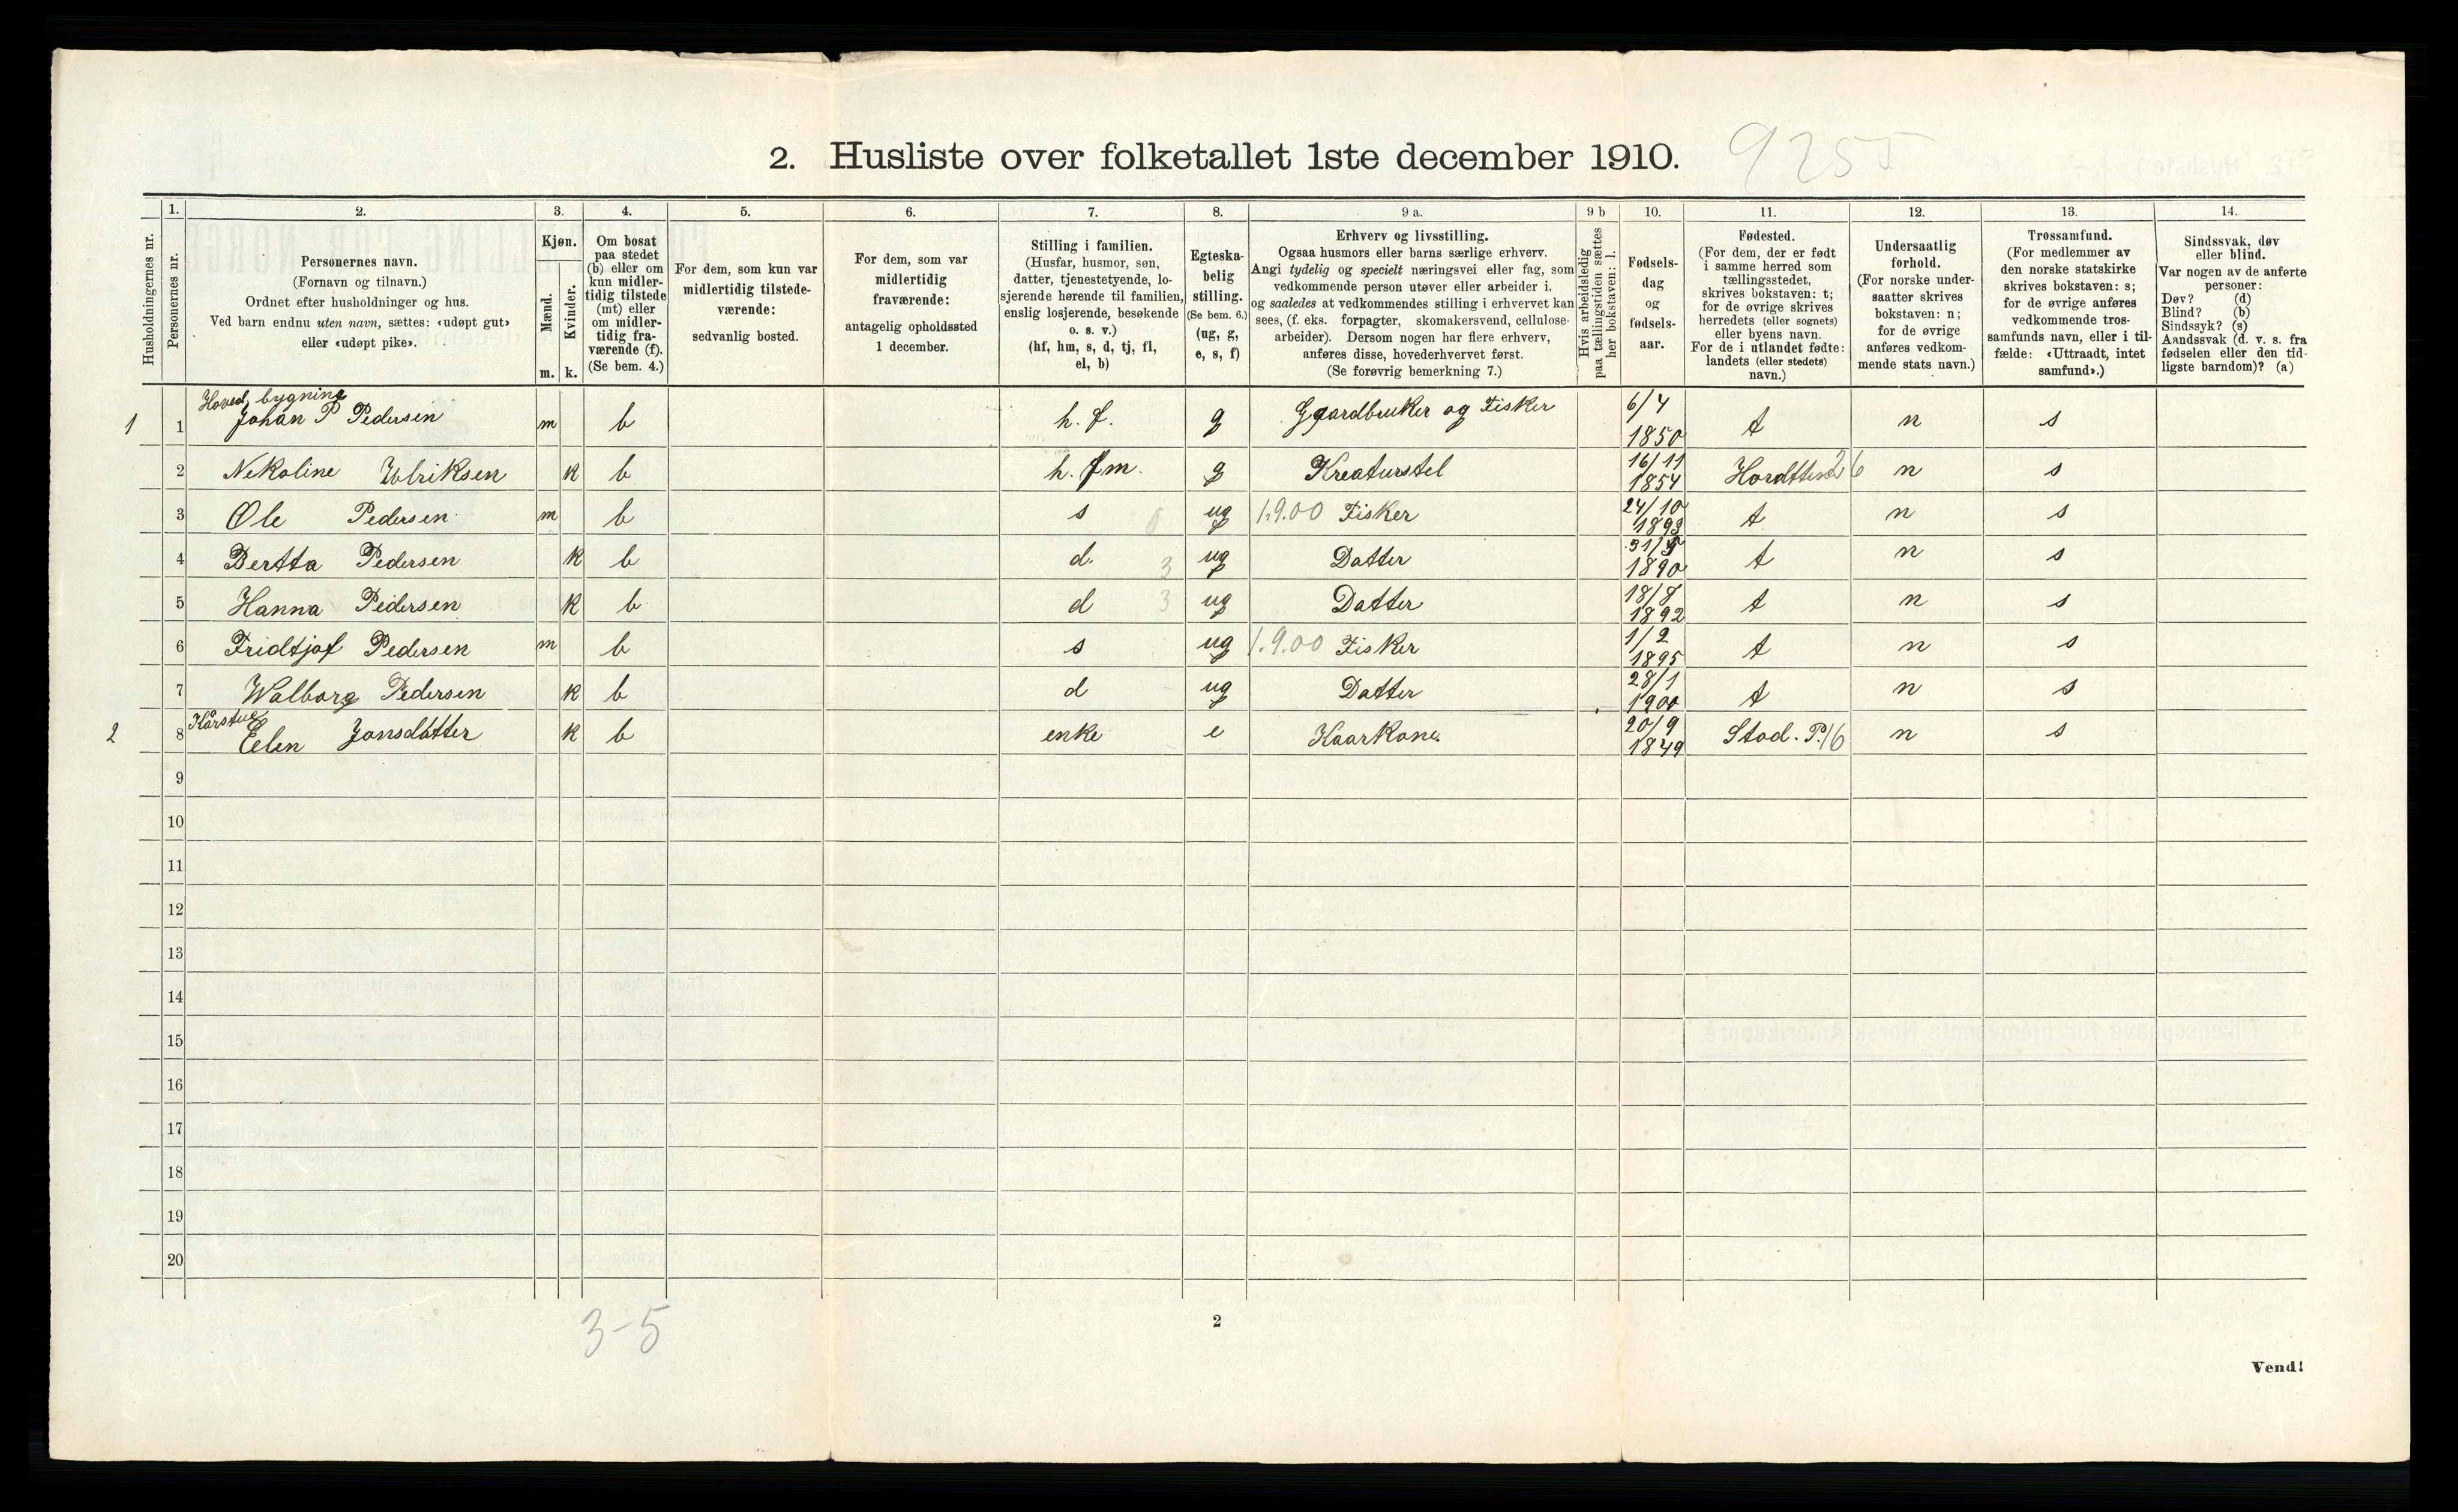 2. Husliste over folketallet 1ste december 1910. 9255
Husholdningernes nr.
1. Personernes nr.
2.
Personernes navn.
(Fornavn og tilnavn.)
Ordnet efter husholdninger og hus.
Ved barn endnu uten navn, sættes: «udøpt gut»
eller «udøpt pike».
3.
Kjøn.
Mænd.
Kvinder.
m. k.
4.
Om bosat
paa stedet
(b) eller om
kun midler-
tidig tilstede
(mt) eller
om midler-
tidig fra-
værende (f).
(Se bem. 4.)
5.
For dem, som kun var
midlertidig tilstede-
værende:
sedvanlig bosted.
6.
For dem, som var
midlertidig
fraværende:
antagelig opholdssted
1 december.
7.
Stilling i familien.
(Husfar, husmor, søn,
datter, tjenestetyende, lo-
sjerende hørende til familien,
enslig losjerende, besøkende
o. s. v.)
(hf, hm, s, d, tj, fl,
el, b)
8.
Egteska-
belig
stilling.
(Se bem. 6.)
(ug, g,
e, s, f)
9 a.
Erhverv og livsstilling.
Ogsaa husmors eller barns særlige erhverv.
Angi tydelig og specielt næringsvei eller fag, som
vedkommende person utøver eller arbeider i,
og saaledes at vedkommendes stilling i erhvervet kan
sees, (f. eks. forpagter, skomakersvend, cellulose-
arbeider). Dersom nogen har flere erhverv,
anføres disse, hovederhvervet først.
(Se forøvrig bemerkning 7.)
9 b
Hvis arbeidsledig
paa tællingstiden sættes
her bokstaven: l.
10.
Fødsels-
dag
og
fødsels-
aar.
11.
Fødested.
(For dem, der er født
i samme herred som
tællingsstedet,
skrives bokstaven: t;
for de øvrige skrives
herredets (eller sognets)
eller byens navn.
For de i utlandet fødte:
landets (eller stedets)
navn.)
12.
Undersaatlig
forhold.
(For norske under-
saatter skrives
bokstaven: n;
for de øvrige
anføres vedkom-
mende stats navn.)
13.
Trossamfund.
(For medlemmer av
den norske statskirke
skrives bokstaven: s;
for de øvrige anføres
vedkommende tros-
samfunds navn, eller i til-
fælde: «Uttraadt, intet
samfund».)
14.
Sindssvak, døv
eller blind.
Var nogen av de anførte
personer:
Døv? (d)
Blind? (b)
Sindssyk? (s)
Aandssvak (d. v. s. fra
fødselen eller den tid-
ligste barndom)? (a)
Hoved bygning
1 1 Johan P Pedersen m b h. f. g Gaardbruker og Fisker 6/4 1850 t n s
2 Nekoline Ulriksen k b h. m. g Kreaturstel 16/11 1854 n s
3 Ole Pedersen m b s ug 1.9.00 Fisker 24/10 1893 t n s
4 Bertta Pedersen k b d. 3 ug Datter 31/5 1890 t n s
5 Hanna Pedersen k b d 3 ug Datter 18/8 1892 t n s
6 Fridtjof Pedersen m b s ug 1.9.00 Fisker 1/2 1895 t n s
7 Walborg Pedersen k b d ug Datter 28/1 1900 t n s
Kårstue
2 8 Eelen Jonsdatter k b enke e Kaarkone. 20/9 1849 Stod. P. 16 n s
9
10
11
12
13
14
15
16
17
18
19
20
3-5
2
Vend!